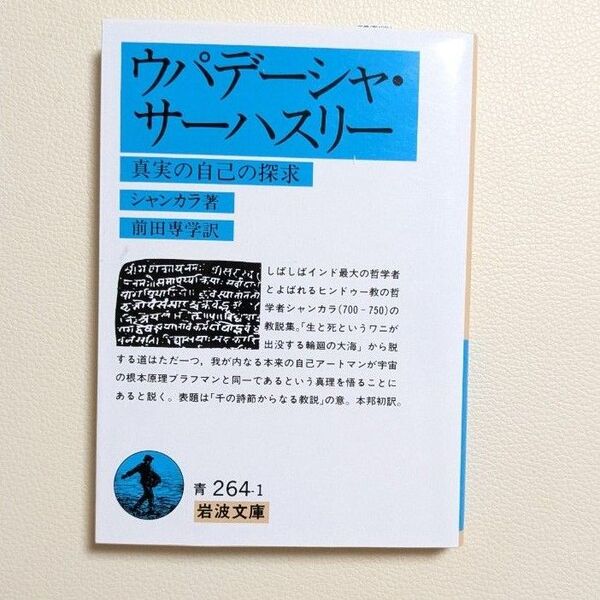 ウパデーシャ・
サーハスリー
真実の自己の探求
シャンカラ著
前田専学訳
しばしばインド最大の哲学者
とよばれるヒンドゥー教の哲
学者シャンカラ(700‐750)の
教説集。「生と死というワニが
出没する輪廻の大海」から脱
する道はただ一つ，我が内なる本来の自己アートマンが宇宙
の根本原理ブラフマンと同一であるという真理を悟ることに
あると説く。表題は「千の詩節からなる教説」の意。本邦初訳。
青 264-1
岩波文庫